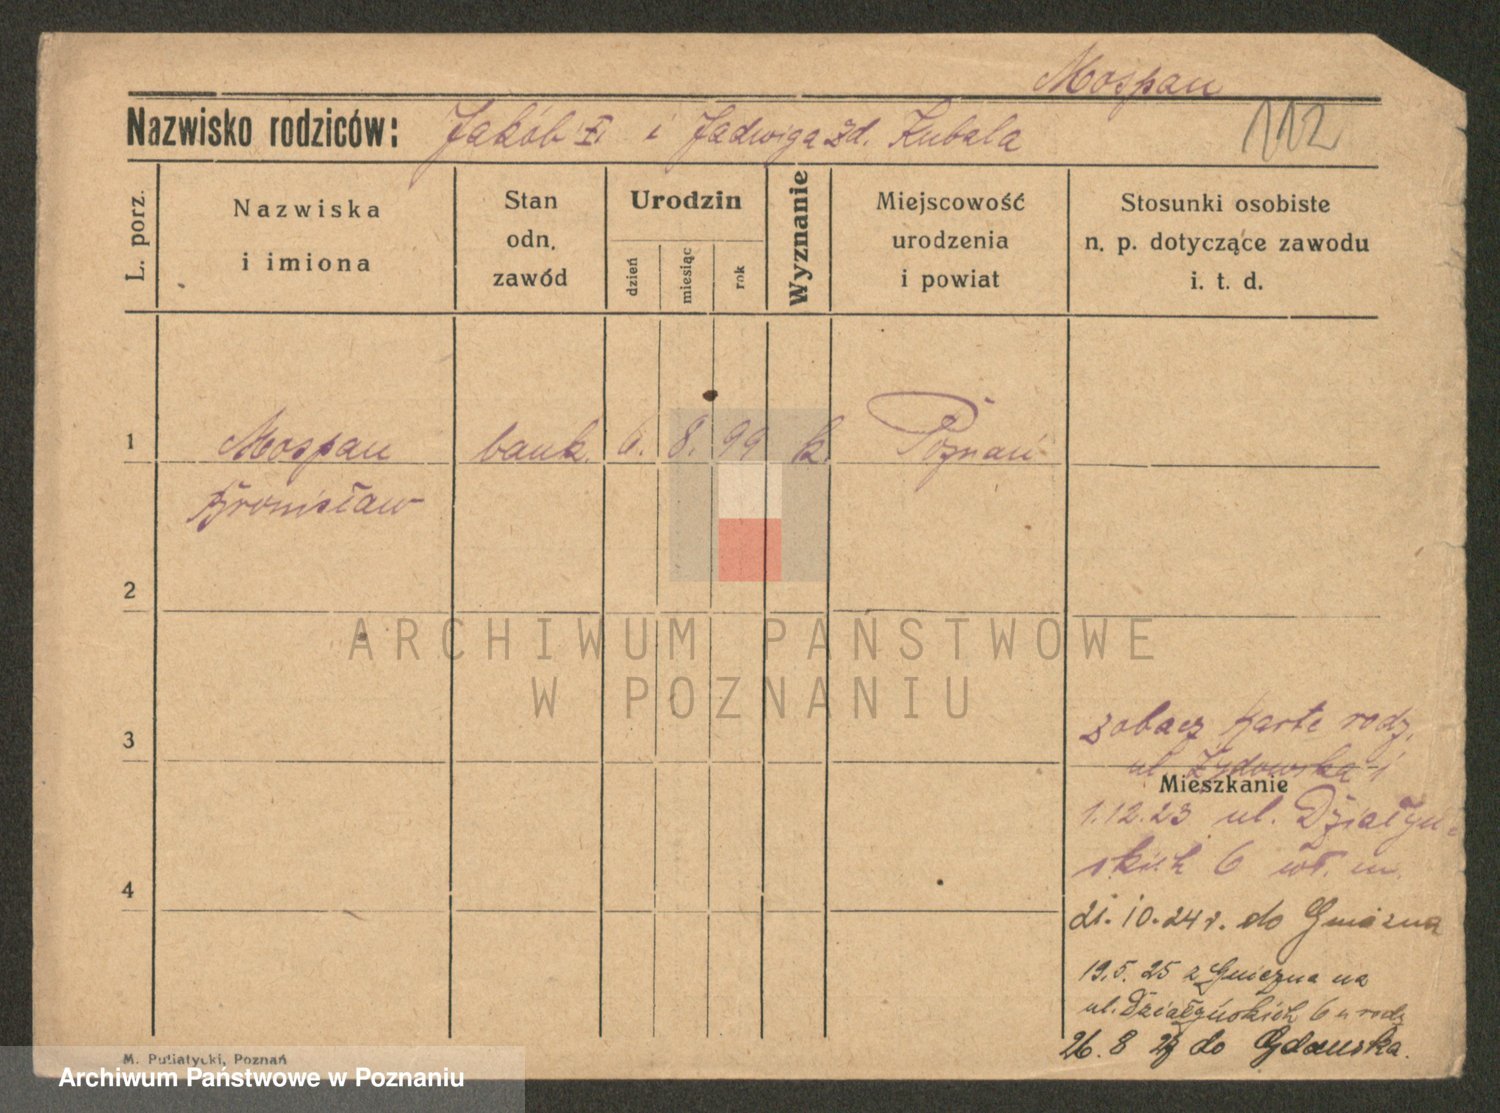 Mospan
Nazwisko rodziców: Jakób i Jadwiga zd. Kubala
112
L. porz.
Nazwiska
i imiona
Stan
odn.
zawód
Urodzin
dzień
miesiąc
rok
Wyznanie
Miejscowość
urodzenia
i powiat
Stosunki osobiste
n. p. dotyczące zawodu
i. t. d.
1 Mospan bank. 6. 8. 99 k. Poznań
Bronisław
2
3
zobacz Kartę rodz.
ul. Żydowska
Mieszkanie
1.12.23 ul. Działyń-
skich 6 wł. m.
4
21. 10. 24 r. do Gniezna
19.5. 25 z Gniezna na
ul. Działyńskich 6 u rodz
26. 8 do Gdańska.
M. Putiatycki, Poznań
ARCHIWUM PAŃSTWOWE
W POZNANIU
Archiwum Państwowe w Poznaniu